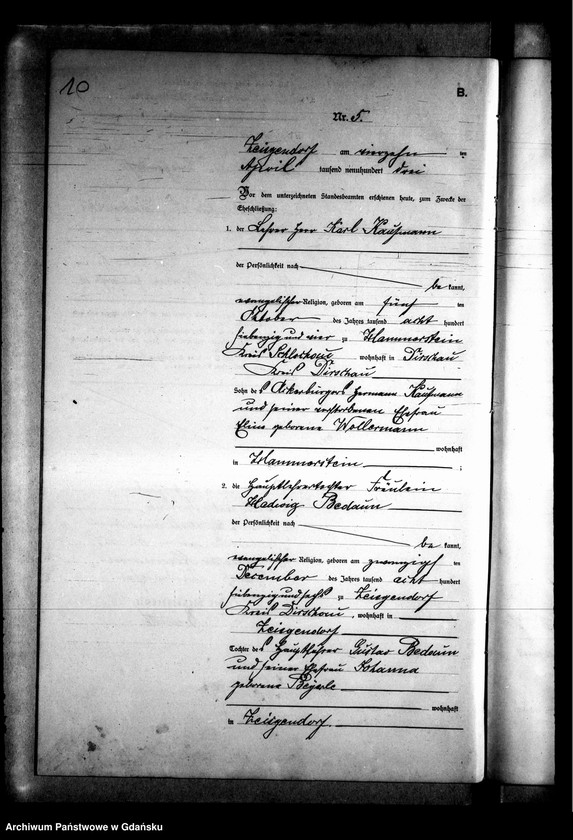 10
B.
Nr. 5.
Zeisgendorf am vierzehn ten
April tausend neunhundert drei
Vor dem unterzeichneten Standesbeamten erschienen heute, zum Zwecke der
Eheschließung:
1. der Lehrer Herr Karl Kaufmann
der Persönlichkeit nach
be kannt,
evangelischer Religion, geboren am fünf ten
Oktober des Jahres tausend acht hundert
siebenzig und vier zu Hammerstein
Kreis Schlochau, wohnhaft in Dirschau
Kreis Dirschau
Sohn des Ackerbürgers Hermann Kaufmann
und seiner verstorbenen Ehefrau
geborene Wollermann
wohnhaft
in Hammerstein ;
2. die Hauptlehrertochter Fräulein
Hedwig Bedaun
der Persönlichkeit nach
be kannt,
evangelischer Religion, geboren am zwanzigs ten
December des Jahres tausend acht hundert
siebenzig und sechs zu Zeisgendorf
Kreis Dirschau, wohnhaft in
Zeisgendorf
Tochter des Hauptlehrer Gustav Bedaun
und seiner Ehefrau Johanna
geborene
wohnhaft
in Zeisgendorf.
Archiwum Państwowe w Gdańsku